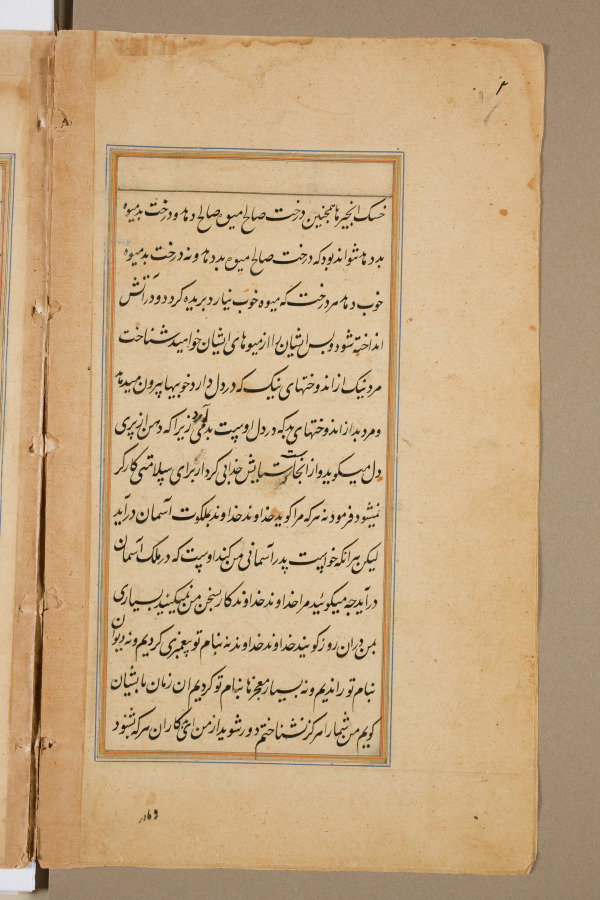 ۴
خسک انجیرها همچنین درخت صالح میوه صالح دهد و درخت بد میوه
بد دهد نتواند بود که درخت صالح میوه بد دهد و نه درخت بد میوه
خوب دهد هر درخت که میوه خوب نیارد بریده گردد و در آتش
انداخته شود و پس ایشان را از میوهای ایشان خواهید شناخت
مرد نیک از اندوختهای نیک که در دل دارد خوبیها بیرون میدهد
و مرد بد از اندوختهای بد که در دل اوست بدی آورد زیرا که دهن از پری
دل میگوید و از انجاست ستایش خدا بی کردار برای سلامتی کارگر
نمیشود فرمود نه هر که مرا گوید خداوند خداوند بملکوت آسمان درآید
لیکن هرانکه خواست پدر آسمانی من کند اوست که در ملک آسمان
درآید چه میگوئید مرا خداوند خداوند کار سخن من نمیکنید بسیاری
بمن در ان روز گویند خداوند خداوند نه بنام تو پیغمبری کردیم و نه دیوان
بنام تو راندیم و نه بسیار معجزها بنام تو کردیم ان زمان با یشان
گویم من شما را هرگز نشناختم دور شوید از من ای کاران هر که بشنود